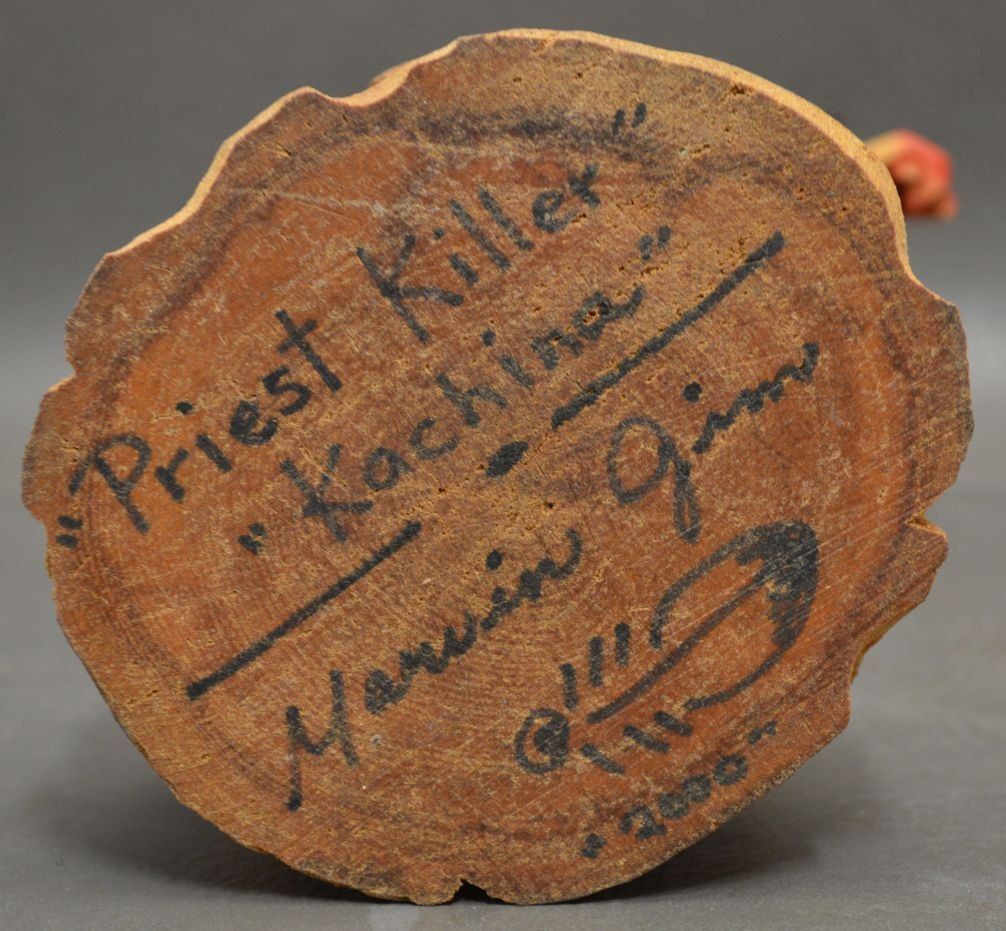 "Priest Killer"
"Kachina"
Marvin Jim
"2000"